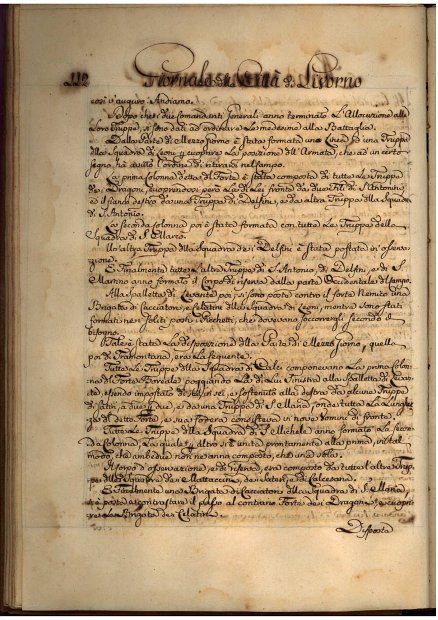 112 Giornale della Città di Livorno
così v'auguro. Andiamo.
Dopo che i due Comandanti Generali anno terminato L'Allocuzione alle
Loro Truppe, si sono dati ad ordinare Le medesime alla Battaglia.
Dalla Parte di Mezzo Giorno è stata formata una Linea di una Truppa
della Squadra di Leoni, p. cuoprire La posizione dell'Armata, che ad un certo
segno, ha avuto L'ordine di ritirarsi nel Campo.
La prima Colonna detta di Forte è stata composta di tutte Le Truppe
de' Dragoni, cuoprendosi però La di Lei fronte da due File di S. Antonio,
e il fianco destro da una Truppa di Delfini, e da altra Truppa della Squadra
di S. Antonio.
La seconda Colonna poi è stata formata con tutte Le Truppe della
Squadra di S. Marco.
Un'altra Truppa della Squadra de' Delfini è stata postata in osserva-
zione.
E Finalmente tutte L'altre Truppe di S. Antonio, di Delfini, e di S.
Martino anno formato il Corpo di riserva dalla parte Occidentale del Campo.
Alla Spalletta di Levante poi si sono poste contro il Forte Nemico una
Brigata di Cacciatori, e Celatini della Squadra di Leoni, mentre sono stati
formati ne' soliti posti i Picchetti, che dovevano soccorrergli secondo il
bisogno.
Tale è stata La disposizione della Parte di Mezzo Giorno, quella
poi di Tramontana, era La seguente.
Tutte Le Truppe della Squadra di Calci componevano La prima Colon-
na di Forte Boreale, poggiando La di Lui sinistra alla Spalletta di Levan-
te, essendo impostato de' suoi, e sostenuto alla destra da alcune Truppe
di Satiri, a due a due, e da una Truppa di S. Maria, onde tutta La Lunghez-
za di detto Forte, e sua forza consisteva in nove Uomini di fronte.
Tutte Le Truppe della Squadra di S. Michele anno formato La secon-
da Colonna, La quale p. altro si è unita prontamente alla prima, in tal
modo, che ambedue non ne anno composto, che una sola.
Il Corpo di osservazione, e di riserva, era composto da tutte L'altre Trup-
pe delle Squadre de' Mattaccini, de' Satiri, e di Calcesana.
E Finalmente una Brigata di Cacciatori della Squadra di S. Maria,
si è posta a contrastare il passo al contrario Forte de' Dragoni, e cuopri-
re La Brigata de' Celatini.
Disposta